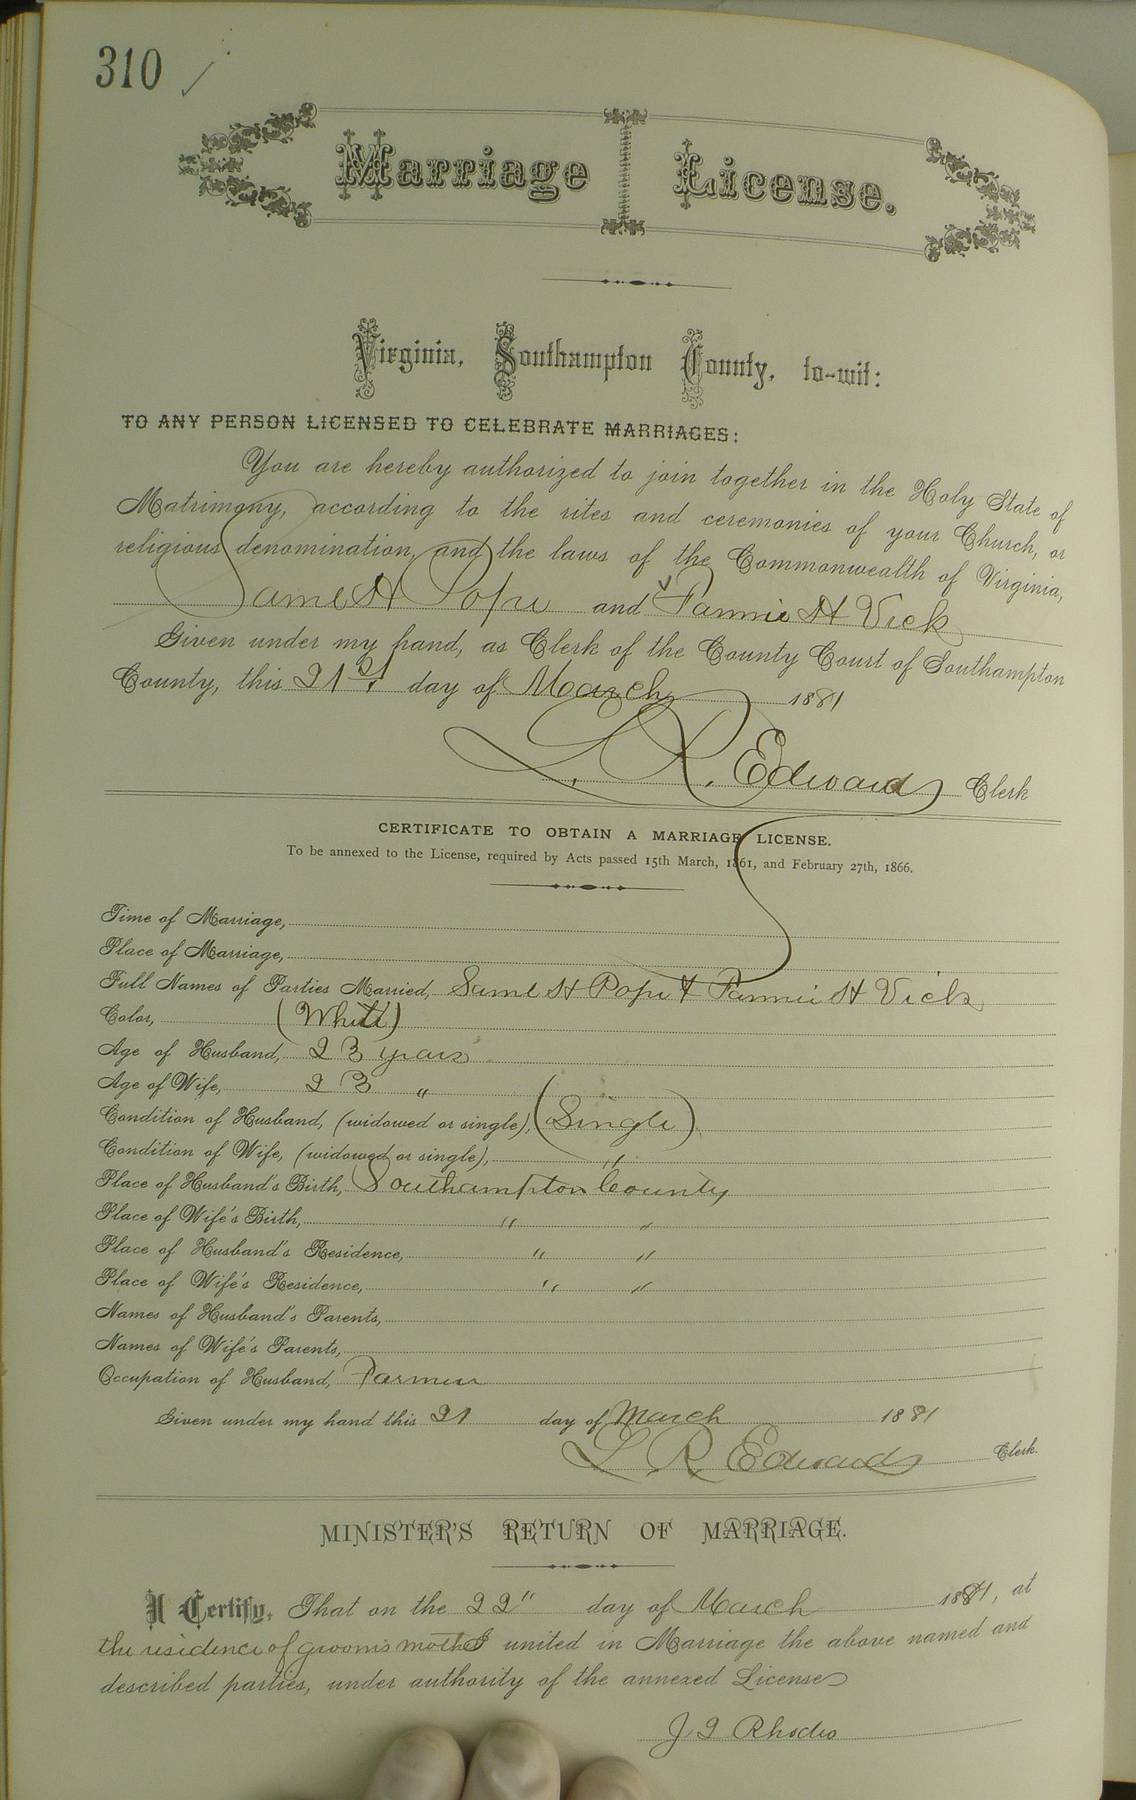 310
Marriage License.
Virginia, Southampton County, to-wit:
TO ANY PERSON LICENSED TO CELEBRATE MARRIAGES:
You are hereby authorized to join together in the Holy State of
Matrimony, according to the rites and ceremonies of your Church, or
religious denomination, and the laws of the Commonwealth of Virginia,
Saml H Pope and Fannie H Vick
Given under my hand, as Clerk of the County Court of Southampton
County, this 21st day of March 1881
L. R. Edwards Clerk
CERTIFICATE TO OBTAIN A MARRIAGE LICENSE.
To be annexed to the License, required by Acts passed 15th March, 1861, and February 27th, 1866.
Time of Marriage,
Place of Marriage,
Full Names of Parties Married, Saml H Pope & Fannie H Vick
Color, (White)
Age of Husband, 23 years
Age of Wife, 23 "
Condition of Husband, (widowed or single), (Single)
Condition of Wife, (widowed or single), "
Place of Husband's Birth, Southampton County
Place of Wife's Birth, " "
Place of Husband's Residence, " "
Place of Wife's Residence, " "
Names of Husband's Parents,
Names of Wife's Parents,
Occupation of Husband, Farmer
Given under my hand this 21 day of March 1881
L. R. Edwards Clerk.
MINISTER'S RETURN OF MARRIAGE.
I Certify, That on the 22" day of March 1881, at
the residence of grooms I united in Marriage the above named and
described parties, under authority of the annexed License
Rhodes